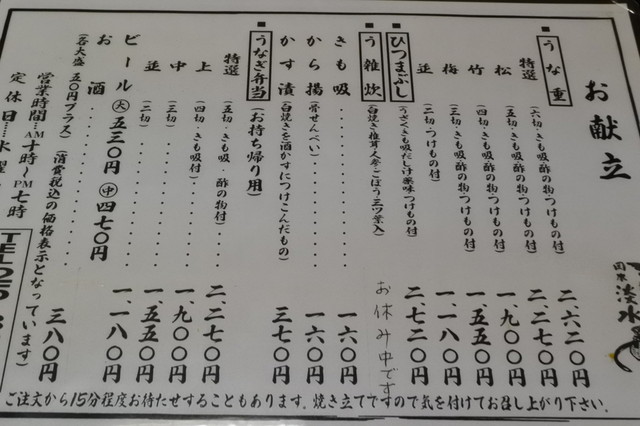 お献立
淡水
うな重
特選(六切・きも吸・酢の物・つけもの付)二、六二〇円
松(五切・きも吸・酢の物・つけもの付)二、二七〇円
竹(四切・きも吸・酢の物・つけもの付)一、九〇〇円
梅(三切・きも吸・酢の物・つけもの付)一、五五〇円
並(二切・つけもの付)一、一八〇円
ひつまぶし(うざくきも吸だし汁薬味つけもの付)二、七二〇円
う雑炊(白焼き椎茸人参ごぼう三ツ葉入)お休み中です
きも吸 一六〇円
から揚(骨せんべい)一六〇円
かす漬(白焼きを酒かすにつけこんだもの)三七〇円
うなぎ弁当(お持ち帰り用)
特選(五切・きも吸・酢の物付)二、二七〇円
上(四切・きも吸付)一、九〇〇円
中(三切)一、五五〇円
並(二切)一、一八〇円
お酒 三八〇円
ビール(大)五三〇円(中)四七〇円
(各大盛 五〇円プラス)(消費税込の価格表示となっています)
営業時間…AM十時〜PM七時
定休日…水曜
ご注文から15分程度お待たせすることもあります。焼き立てですので気を付けてお召し上がり下さい。